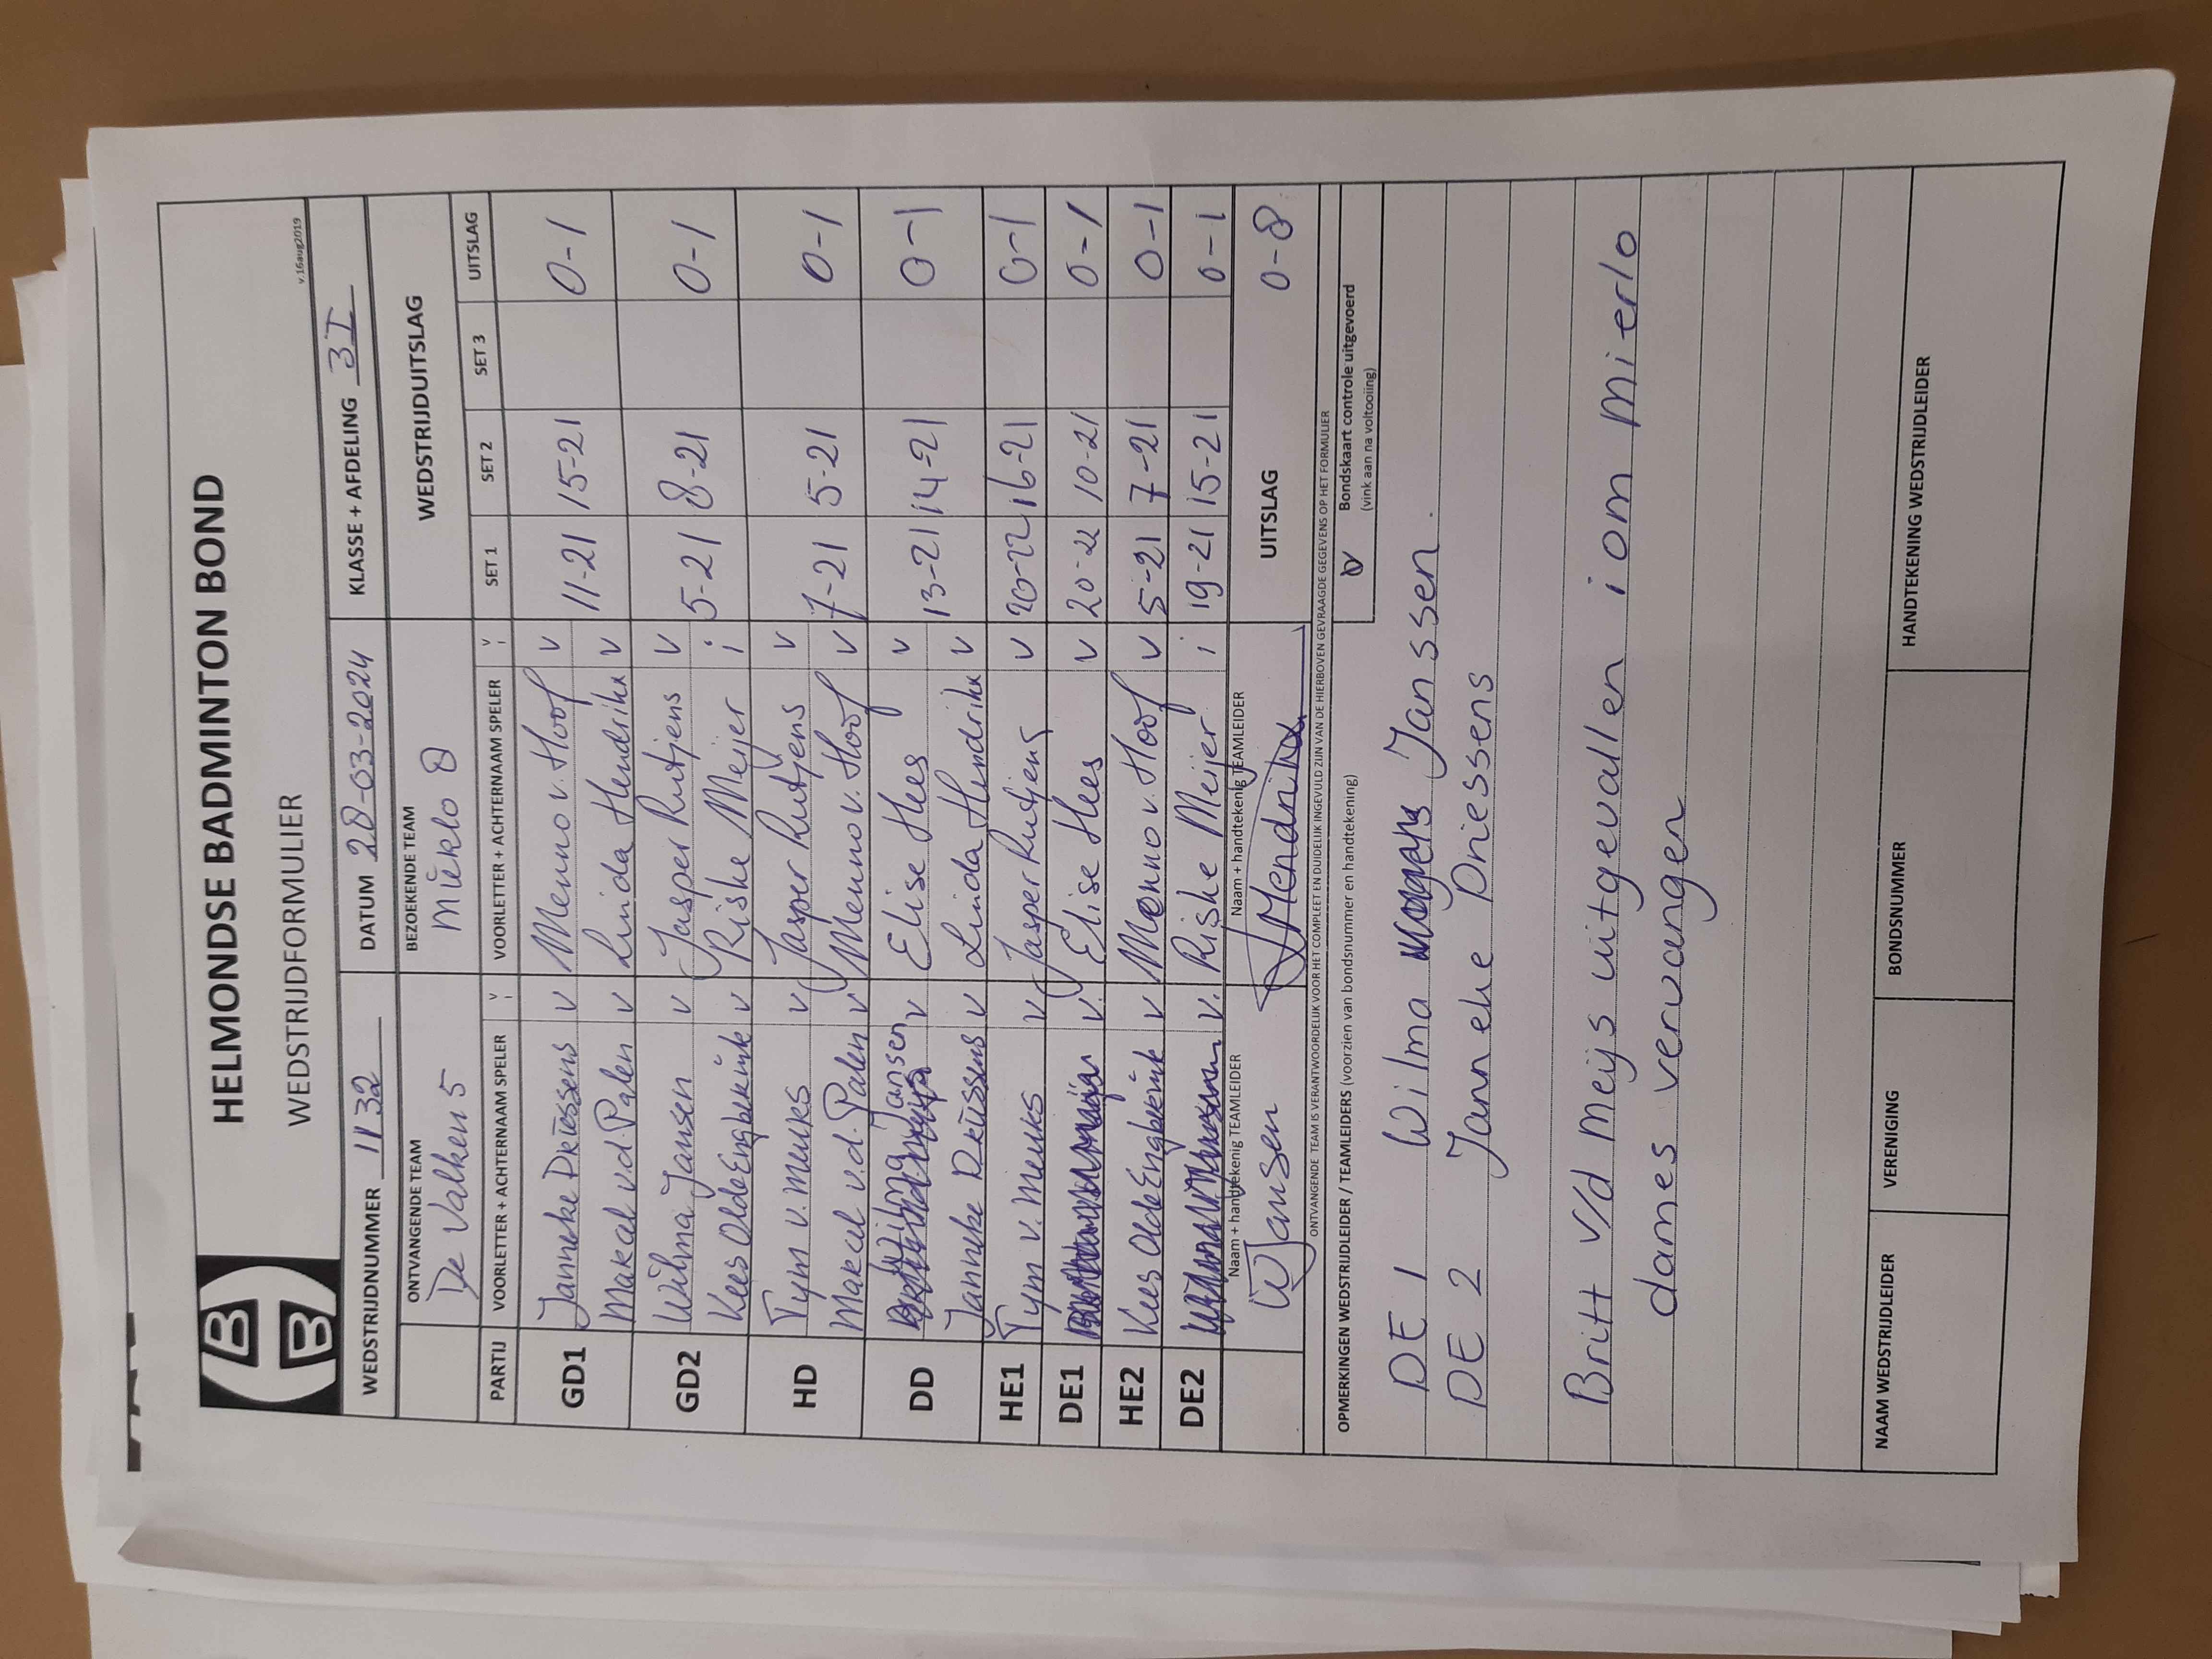 HELMONDSE BADMINTON BOND
WEDSTRIJDFORMULIER
v.16aug2019
WEDSTRIJDNUMMER 1132 DATUM 28-03-2024 KLASSE + AFDELING 3I
ONTVANGENDE TEAM BEZOEKENDE TEAM WEDSTRIJDUITSLAG
De Valken 5 Mierlo 8
PARTIJ VOORLETTER + ACHTERNAAM SPELER V I VOORLETTER + ACHTERNAAM SPELER V I SET 1 SET 2 SET 3 UITSLAG
GD1 Janneke Driessens v Menno v. Hoof v 11-21 15-21 0-1
Marcel v.d. Palen v Linda Hendrikx v
GD2 Wilma Jansen v Jasper Rutjens v 5-21 8-21 0-1
Kees Olde Engberink v Riske Meijer i
HD Tym v. Menks v Jasper Rutjens v 7-21 5-21 0-1
Marcel v.d. Palen v Menno v. Hoof v
DD Wilma Jansen v Elise Hees v 13-21 14-21 0-1
Janneke Driessens v Linda Hendrikx v
HE1 Tym v. Menks v Jasper Rutjens v 20-22 16-21 0-1
DE1 v. Elise Hees v 20-22 10-21 0-1
HE2 Kees Olde Engberink v Menno v. Hoof v 5-21 7-21 0-1
DE2 v. Riske Meijer i 19-21 15-21 0-1
Naam + handtekenig TEAMLEIDER Naam + handtekenig TEAMLEIDER UITSLAG 0-8
WJansen LHendrikx
ONTVANGENDE TEAM IS VERANTWOORDELIJK VOOR HET COMPLEET EN DUIDELIJK INGEVULD ZIJN VAN DE HIERBOVEN GEVRAAGDE GEGEVENS OP HET FORMULIER
OPMERKINGEN WEDSTRIJDLEIDER / TEAMLEIDERS (voorzien van bondsnummer en handtekening)
V Bondskaart controle uitgevoerd
(vink aan na voltooiing)
DE 1 Wilma Janssen.
DE 2 Janneke Driessens
Britt v/d Meijs uitgevallen iom mierlo
dames vervangen
NAAM WEDSTRIJDLEIDER VERENIGING BONDSNUMMER HANDTEKENING WEDSTRIJDLEIDER